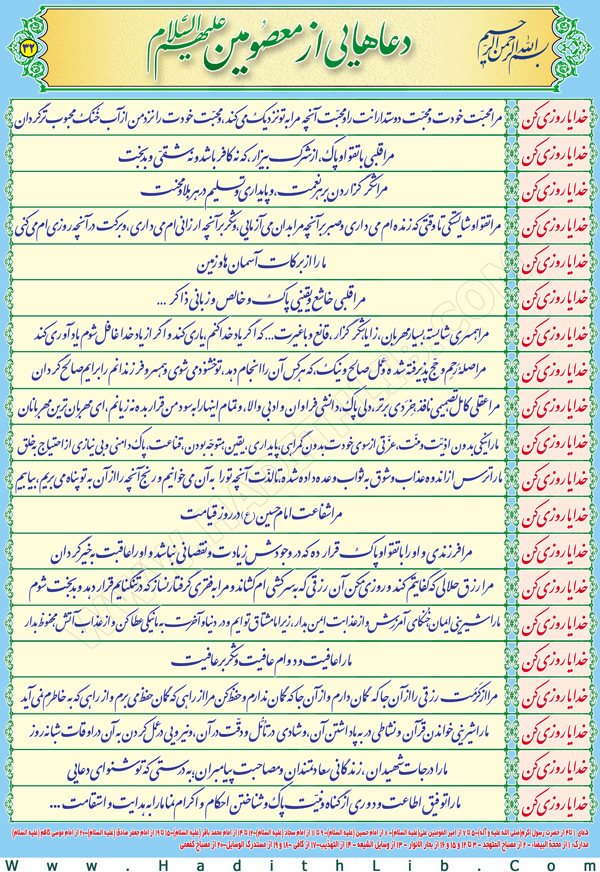 بسم الله الرحمن الرحیم
دعاهایی از معصومین علیهم السلام
۳۲
خدایا روزی کن مرا محبّت خودت و محبّت دوستدارانت را و محبّت آنچه مرا به تو نزدیک می کند، و محبّت خودت را نزد من از آب خُنک محبوب تر گردان
خدایا روزی کن مرا قلبی با تقوا و پاک، از شرک بیزار، که نه کافر باشد و نه شقیّ و بدبخت
خدایا روزی کن مرا شکر گزاردن بر هر نعمت، و پایداری و تسلیم در هر بلا و محنت
خدایا روزی کن مرا تقوا و شایستگی تا وقتی که زنده ام می داری و صبر بر آنچه مرا بدان می آزمایی، و شکر بر آنچه ارزانی ام می داری، و برکت در آنچه روزی ام می کنی
خدایا روزی کن ما را از برکات آسمان ها و زمین
خدایا روزی کن مرا قلبی خاشع و یقینی پاک و خالص و زبانی ذاکر ...
خدایا روزی کن مرا همسری شایسته، بسیار مهربان، زایا، شکر گزار، قانع و با غیرت... که اگر یاد خدا کنم، یاری کند و اگر از یاد خدا غافل شوم یادآوری کند
خدایا روزی کن مرا صلۀ رحِم و حجّ پذیرفته شده و عَمل صالح و نیک، که هر کس آن را انجام دهد، تو خشنود می شوی و همسر و فرزندانم را برایم صالح گردان
خدایا روزی کن مرا عقلی کامل، تصمیمی نافذ، خِردی برتر، دلی پاک، دانشی فراوان و ادبی والا، و تمام اینها را به سود من قرار بده نه زیانم، ای مهربان ترین مهربانان
خدایا روزی کن ما را نیکی بدون اذیّت و منّت، عزّتی از سوی خودت بدون گمراهی پایداری، یقین به توحید بودن، قناعت، پاک دامنی و بی نیازی از احتیاج به خلق
خدایا روزی کن ما را ترس از اندوه عذاب و شوق به ثواب وعده داده شده، تا لذّت آنچه تو را به آن می خوانیم و رنج آنچه را از آن به تو پناه می بریم، بیابیم
خدایا روزی کن مرا شفاعت امام حسین (ع) در روز قیامت
خدایا روزی کن مرا فرزندی و او را با تقوا و پاک قرار ده که در وجودش زیادت و نقصانی نباشد و او را عاقبت به خیر گردان
خدایا روزی کن مرا رزق حلالی که کفایتم کند و روزی مکن آن رزقی که به سرکشی ام کشاند و مرا به فقری گرفتار نساز که در تنگنایم قرار دهد و بدبخت شوم
خدایا روزی کن ما را شیرینی ایمان، خُنکای آمرزش و از عذابت امن بدار، زیرا ما مشتاق توایم و در دنیا و آخرت به ما نیکی عطا کن و از عذاب آتش محفوظ بدار
خدایا روزی کن ما را عافیت و دوام عافیت و شکر بر عافیت
خدایا روزی کن مرا از کَرَمت رزقی را از آن جا که گمان دارم و از آن جا که گمان ندارم و حفظ کن مرا از راهی که گمان حفظ می برم و از راهی که به خاطرم نمی آید
خدایا روزی کن ما را شیرینی خواندن قرآن و نشاطی در به پا داشتن آن، و شادی در تأمّل و دقّت در آن، و نیرویی در عمل کردن به آن در اوقات شبانه روز
خدایا روزی کن ما را درجات شهیدان، زندگانی سعادتمندان و مصاحبت پیامبران؛ به درستی که تو شنوای دعایی
خدایا روزی کن ما را توفیق اطاعت و دوری از گناه و نیّت پاک و شناختن احکام و اکرام نما ما را به هدایت و استقامت ...
W w w . H a d i t h L i b . C o m
WWW.HADITHLIB.COM